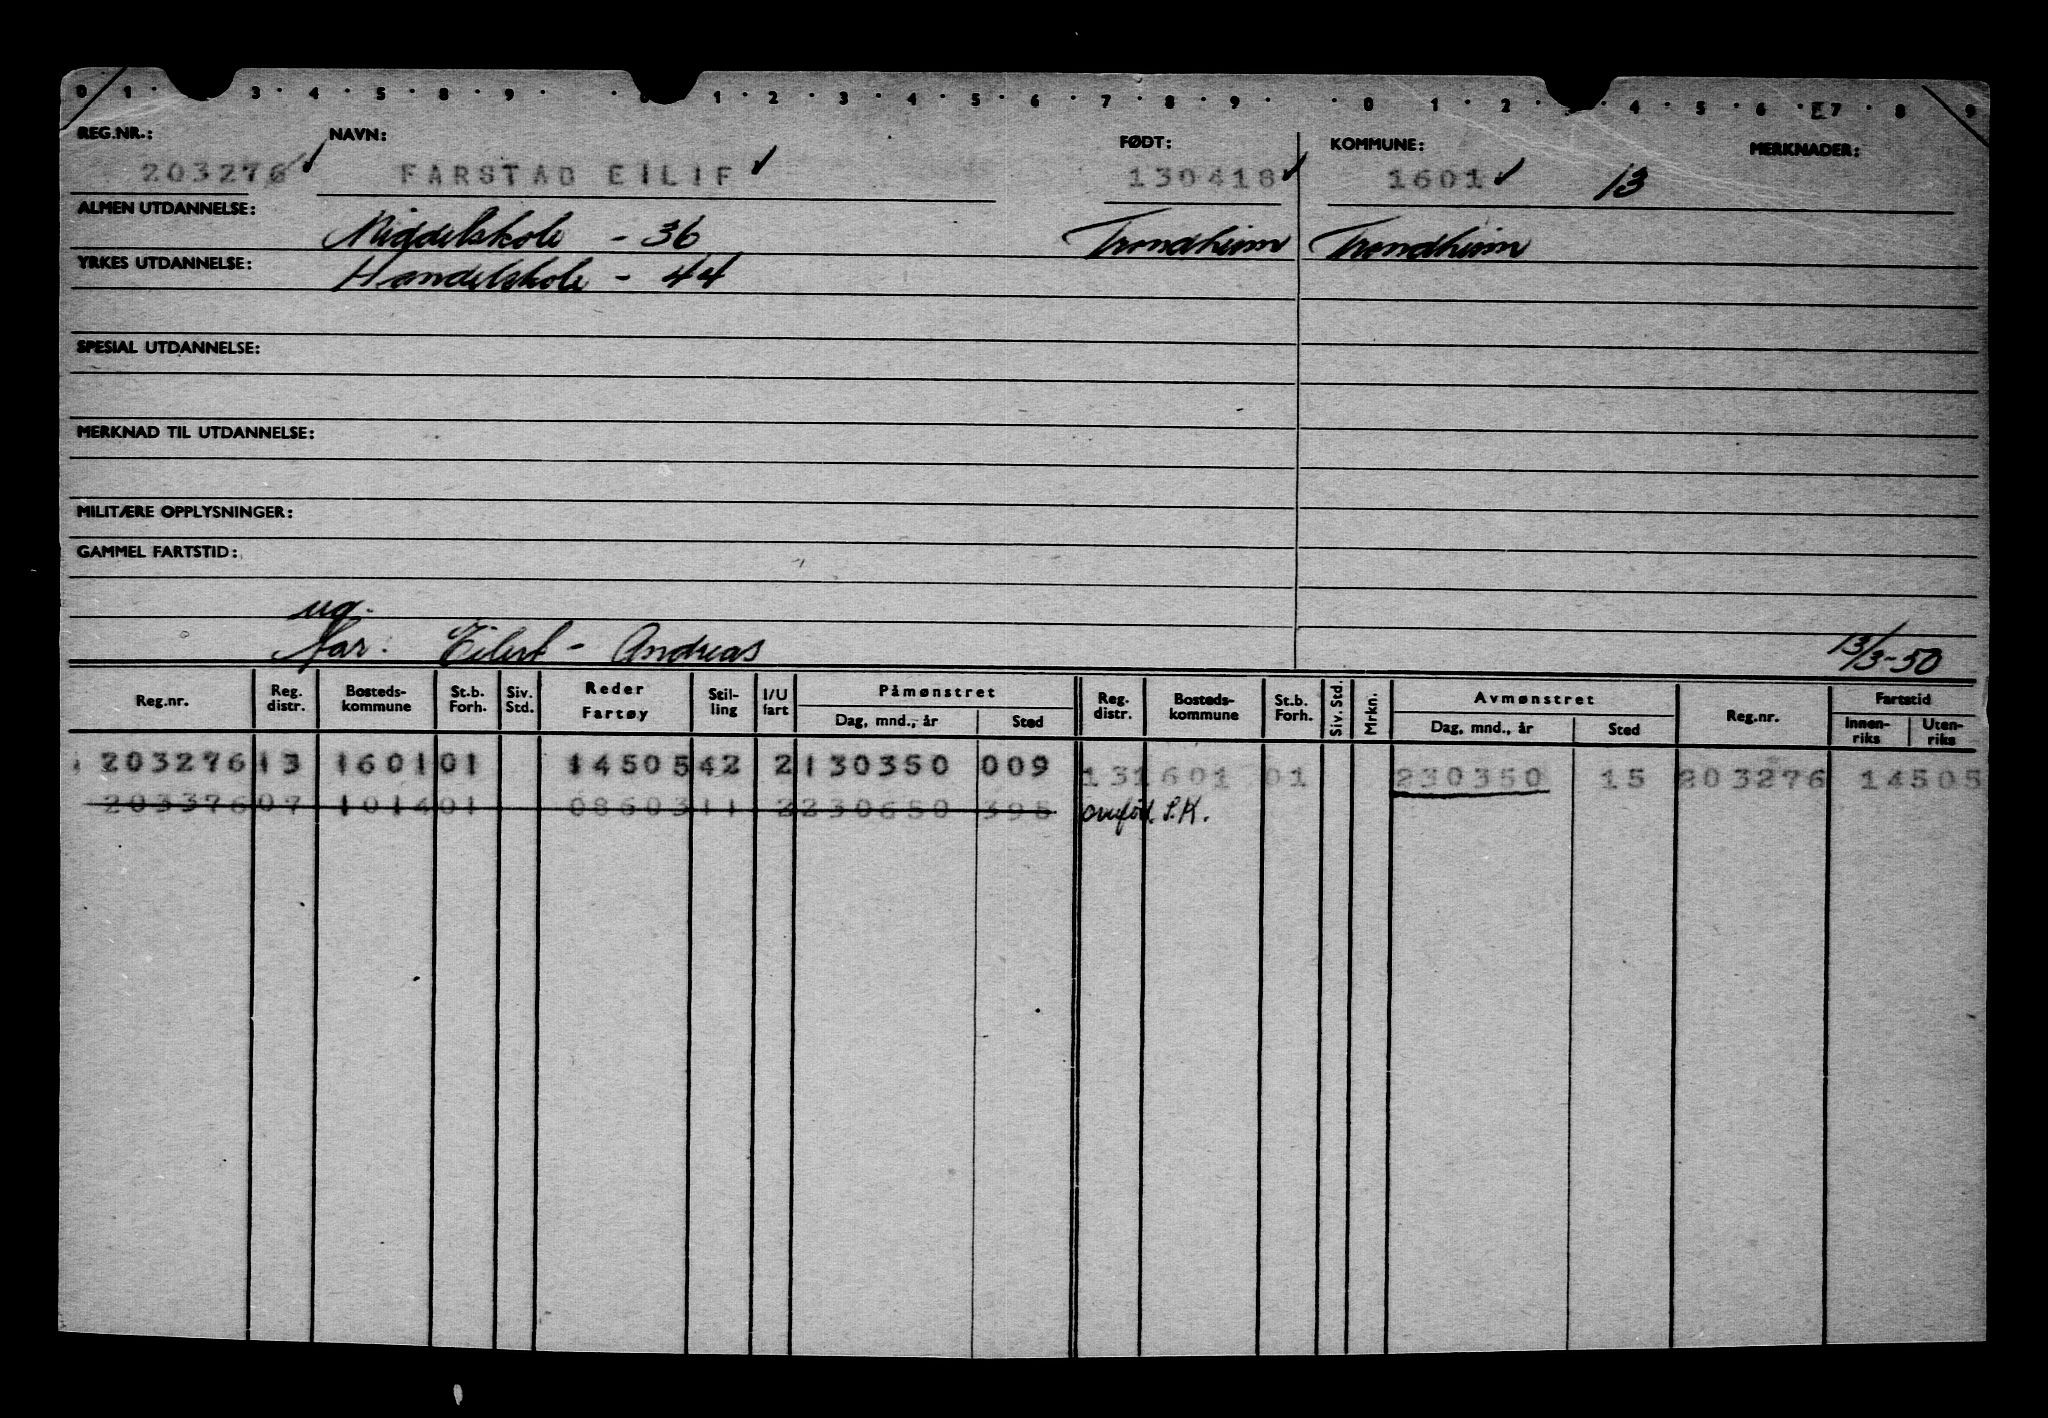 0 1 · 3 · 4 · 5 · 8 · 9 · · 1 · 2 · 3 · 4 · 5 · 6 · 7 · 8 · 9 · · 0 1 · 2 · · 4 · 5 · 6 · E7 · 8 9
REG.NR.: NAVN: FØDT: KOMMUNE: MERKNADER:
203276 ✓ FARSTAD EILIF ✓ 130418 ✓ 1601 ✓ 13
ALMEN UTDANNELSE: Middelskole - 36 Trondheim Trondheim
YRKES UTDANNELSE: Handelskole - 44
SPESIAL UTDANNELSE:
MERKNAD TIL UTDANNELSE:
MILITÆRE OPPLYSNINGER:
GAMMEL FARTSTID:
ug.
far: Eilert - Andreas 13/3-50
Reg.nr. Reg. distr. Bosteds-kommune St.b. Forh. Siv. Std. Reder Fartøy Stil-ling I/U fart Påmønstret Dag, mnd., år Sted Reg. distr. Bosteds-kommune St.b. Forh. Siv. Std. Mrkn. Avmønstret Dag, mnd., år Sted Reg.nr. Fartstid Innen-riks Uten-riks
203276 13 1601 01 14505 42 2 130350 009 13 1601 01 230350 15 203276 14505
203376 07 1014 01 08603 11 2 230650 395 overf. S.K.